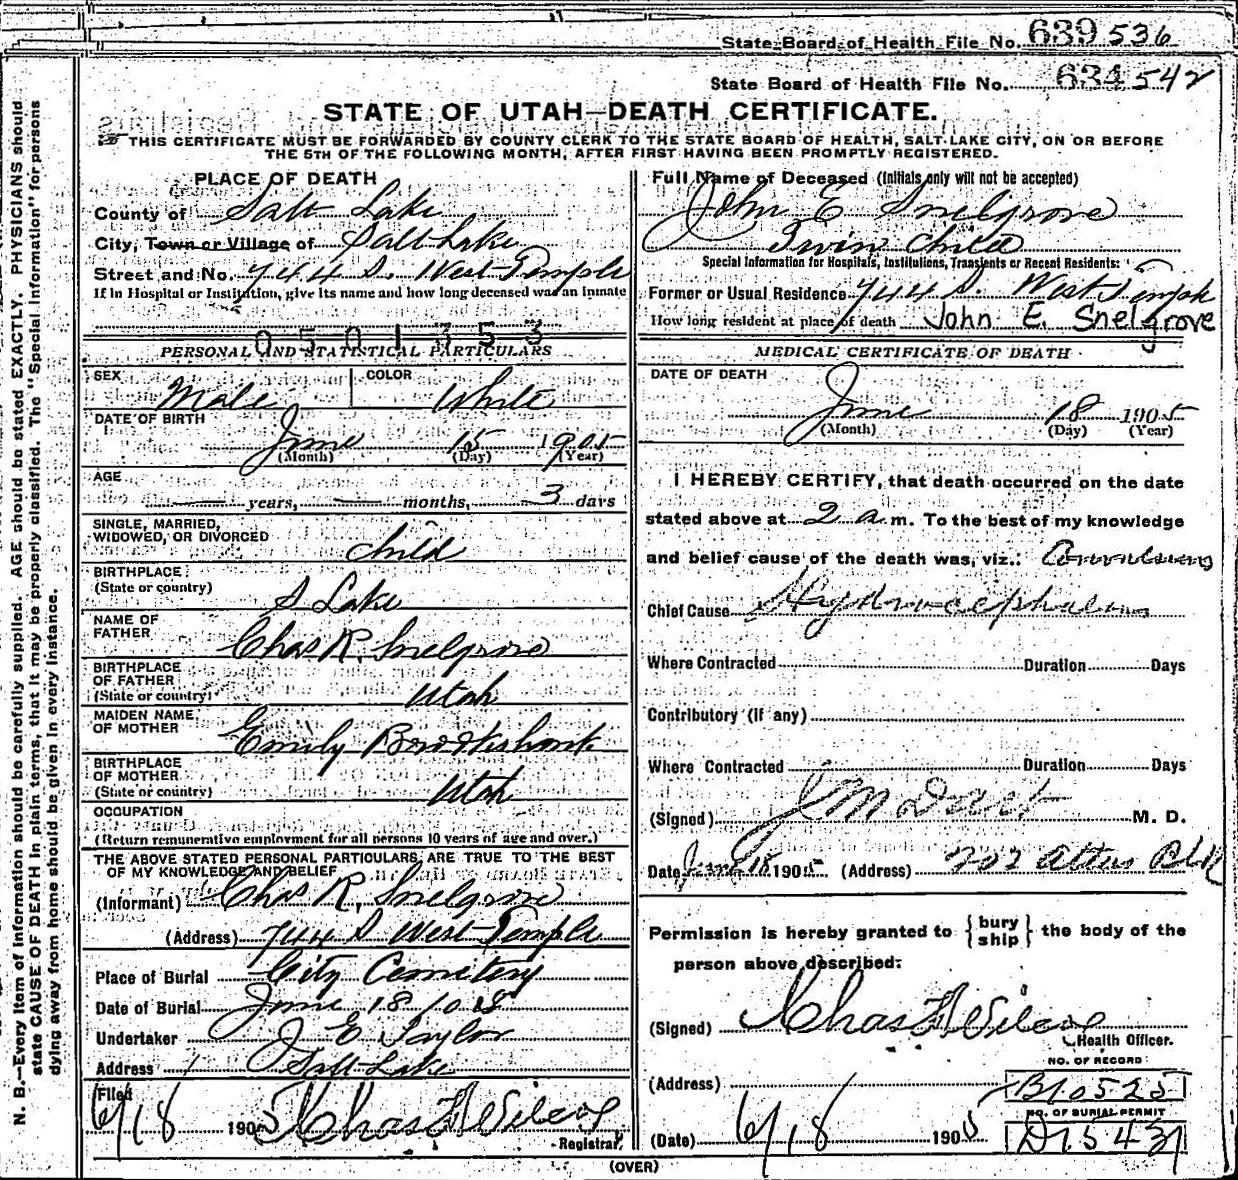 State Board of Health File No. 639 536
State Board of Health File No. 634 542
STATE OF UTAH—DEATH CERTIFICATE.
THIS CERTIFICATE MUST BE FORWARDED BY COUNTY CLERK TO THE STATE BOARD OF HEALTH, SALT LAKE CITY, ON OR BEFORE
THE 5TH OF THE FOLLOWING MONTH, AFTER FIRST HAVING BEEN PROMPTLY REGISTERED.
N. B.—Every item of information should be carefully supplied. AGE should be stated EXACTLY. PHYSICIANS should
state CAUSE OF DEATH in plain terms, that it may be properly classified. The "Special Information" for persons
dying away from home should be given in every instance.
PLACE OF DEATH
County of Salt Lake
City, Town or Village of Salt Lake
Street and No. 744 S. West Temple
If in Hospital or Institution, give its name and how long deceased was an inmate
0501353
PERSONAL AND STATISTICAL PARTICULARS
SEX Male COLOR White
DATE OF BIRTH June 15 1905
(Month) (Day) (Year)
AGE
— years, — months, 3 days
SINGLE, MARRIED,
WIDOWED, OR DIVORCED child
BIRTHPLACE
(State or country) S Lake
NAME OF
FATHER Chas R. Snelgrove
BIRTHPLACE
OF FATHER
(State or country) Utah
MAIDEN NAME
OF MOTHER Emily
BIRTHPLACE
OF MOTHER
(State or country) Utah
OCCUPATION
(Return remunerative employment for all persons 10 years of age and over.)
THE ABOVE STATED PERSONAL PARTICULARS ARE TRUE TO THE BEST
OF MY KNOWLEDGE AND BELIEF
(Informant) Chas R. Snelgrove
(Address) 744 S West Temple
Place of Burial City Cemetery
Date of Burial June 18 1905
Undertaker J E Taylor
Address Salt Lake
Filed
6/18 1905 Chas F Wilcox
Registrar.
Full Name of Deceased (Initials only will not be accepted)
John E Snelgrove
Twin child
Special Information for Hospitals, Institutions, Transients or Recent Residents:
Former or Usual Residence 744 S. West Temple
How long resident at place of death John E. Snelgrove
MEDICAL CERTIFICATE OF DEATH
DATE OF DEATH
June 18 1905
(Month) (Day) (Year)
I HEREBY CERTIFY, that death occurred on the date
stated above at 2 a.m. To the best of my knowledge
and belief cause of the death was, viz.: Convulsions
Chief Cause Hydrocephalus
Where Contracted Duration Days
Contributory (if any)
Where Contracted Duration Days
(Signed) J M M. D.
Date June 18 1905 (Address) 202 Atlas Blk
Permission is hereby granted to { bury
ship } the body of the
person above described:
(Signed) Chas F Wilcox
Health Officer.
NO. OF RECORD
(Address) B10525
NO. OF BURIAL PERMIT
(Date) 6/18 1905 D15431
(OVER)